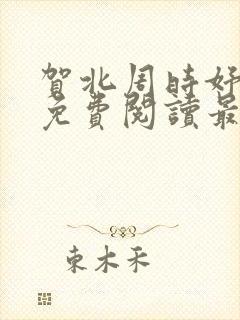 賀北周時好
免費閱讀最
東木禾